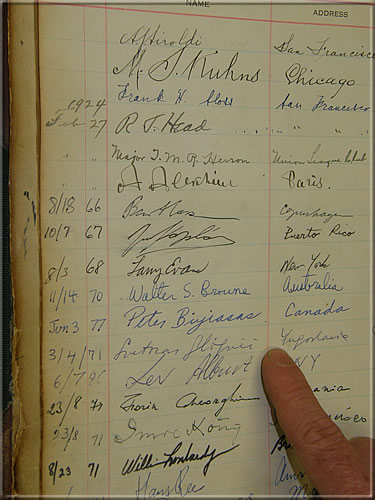 NAME ADDRESS
A. Giroldi San Francisco
M. S. Kuhns Chicago
1924 Frank H. Sloss San Francisco
Feb 27 R. T. Head " "
" " Major I. M. R. Herron Union League Club
" " A Alekhine Paris.
8/18 66 Copenhagen
10/7 67 Puerto Rico
8/3 68 Larry Evans New York
11/14 70 Walter S. Browne Australia
Jun 3 77 Peter Biyiasas Canada
3/4/71 Svetozar Gligoric Yugoslavia
6/7 Lev Alburt NY
23/8 71 Florin Gheorghiu ania
23/8 71 Imre König cisco
8/23 71 William Lombardy
Hans Ree